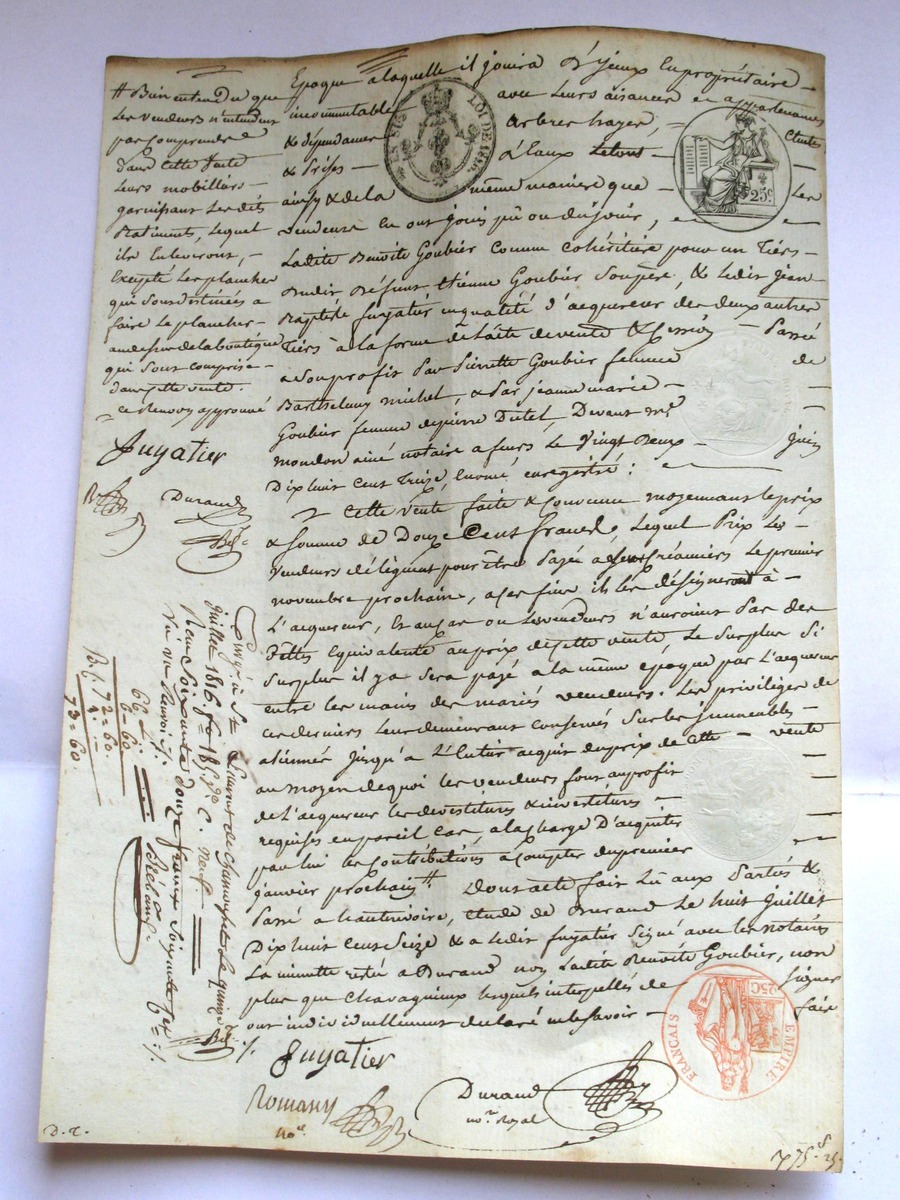 Epoque a laquelle il jouira & jeux En propriétaire
incommutable avec Leurs aisances et appartenances
& dépendances arbres hayes, Clutes
& Prises d'Eaux Letout
ainsy & de la même maniere que Les
Vendeurs En ont jouis pû ou du jouir,
Ladite Benoite Goubier Comme Cohéritiere pour un Tiers
Dudit Défunt Etienne Goubier Son pere, & Ledit Jean
Baptiste fuyatier en qualité d'acquereur des deux autres
Tiers à la forme de l'acte de vente & Cession Passé
a Son profit Par Pierrette Goubier femme de
Barthelemy michel, & Par jeanne marie
Goubier femme de pierre Dutel, Devant me
mondon ainé notaire a feurs Le Vingt Deux juin
Dix huit Cent Treize, En enregistré:
Cette vente faite & Convenue moyennant le prix
& Somme de Douze Cent francs, Lequel Prix Les
Vendeurs délèguent pour être Payé a Leurs Créanciers Le premier
novembre prochain, a ces fins ils les désigneront à
L'acquereur, Et au cas ou Les vendeurs n'auroient Pas des
Dettes Equivalente au prix de cette vente, Le Surplus Si
Surplus il y a Sera payé a la même époque par L'acquereur
entre les mains des mariés vendeurs. Les privilèges de
ces derniers Leur demeurant conservés Sur les immeubles
aliennés jusqu'à L'Entier acquit du prix de Cette vente
au moyen de quoi les vendeurs font au profit
de l'acquereur les devestitures & investitures
requises en pareil Cas, a la Charge D'acquiter
par lui les Contributions à Compter du premier
janvier prochain # Dont acte fait Lû aux Parties &
Passé a hauterivoire, étude de Durand Le huit juillet
Dix huit Cent Seize & a Ledit fuyatier Signé avec les notaires
La minutte restée a Durand noy Ladite Benoite Goubier, non
plus que Chavagnieux lesquels interpellés de Signer
ont individuellement déclaré ne le Savoir faire
Fuyatier
Romany
no.re
Durand
no.re Royal
# Bien entendu que
Les vendeurs n'entendent
pas Comprendre
dans Cette Vente
Leurs mobiliers
garnissant Les dits
Batiments, Lequel
ils Enleveront,
Excepté Les planches
qui Sont destinées a
faire Le plancher
au dessus de la boutique
qui Sont comprises
dans cette vente.
ce Renvoy approuvé
Fuyatier
Durand
Enregé. à St Laurent de Chamousset Le quinze
juillet 1816 fo 185 Vo C. neuf.
Reçu Soixante douze francs Soixante Ces
66
6-60
72-60
73-60
LOI DE 1816.
25c
EMPIRE FRANÇAIS
25C
D. r.